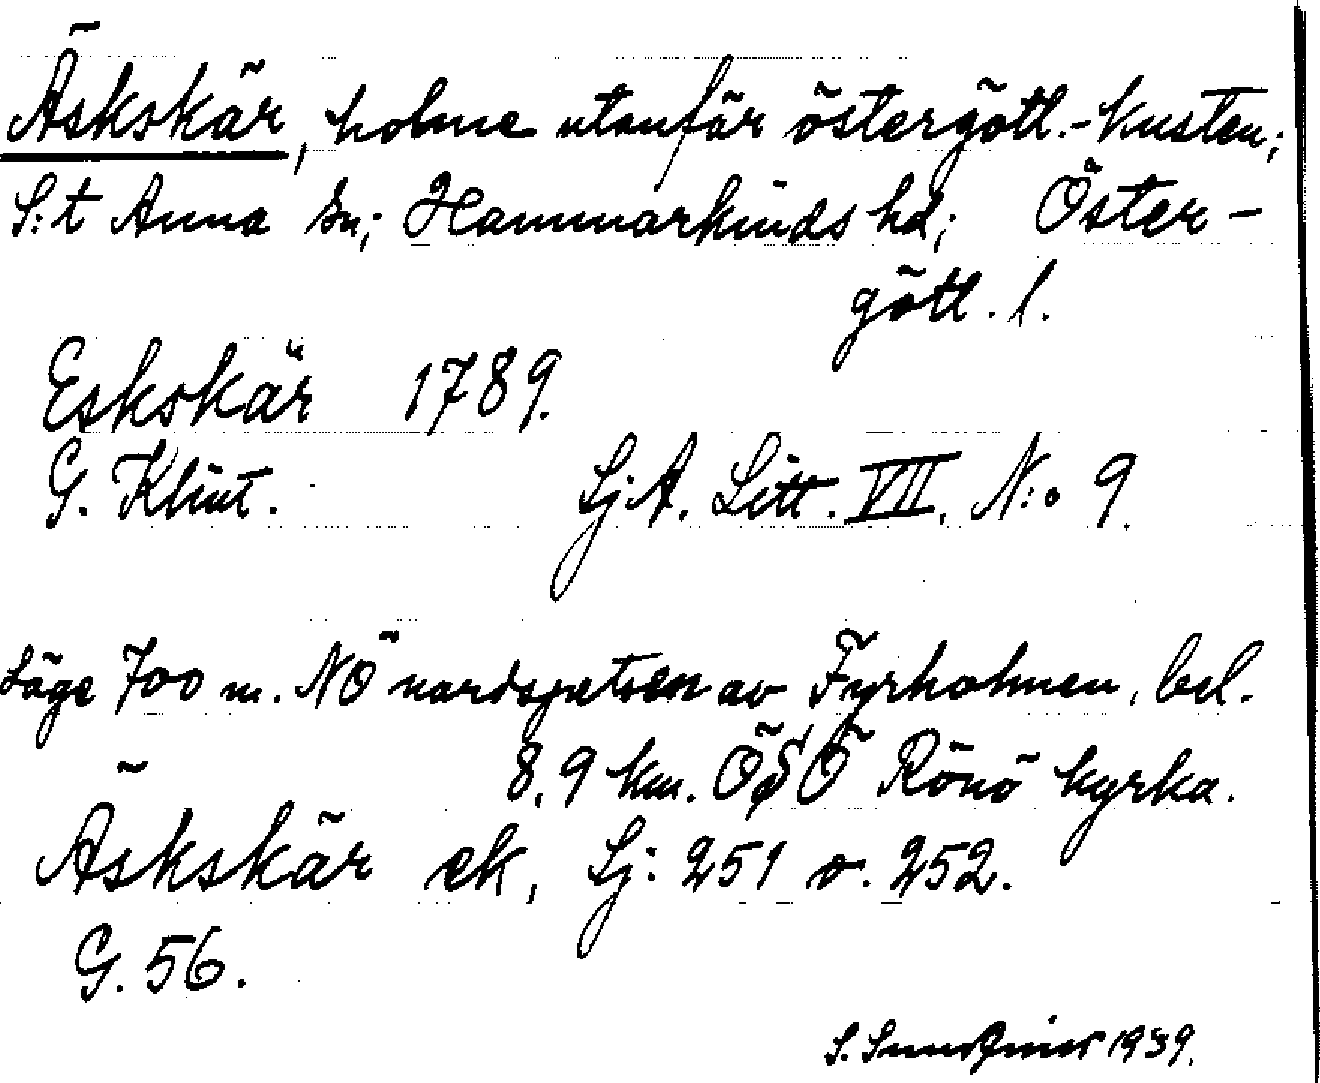 Äskskär, holme utanför östergötl.-kusten;
S:t Anna sn; Hammarkinds hd; Öster-
götl. l.
Eskskär 1789.
G. Klint. Sj.A. Litt. VII. N:o 9.
Läge 700 m. NÖ nordspetsen av Fyrholmen, bel.
8,9 km. ÖSÖ Rönö kyrka.
Äskskär ek, Sj: 251 o. 252.
G. 56.
S. 1939.